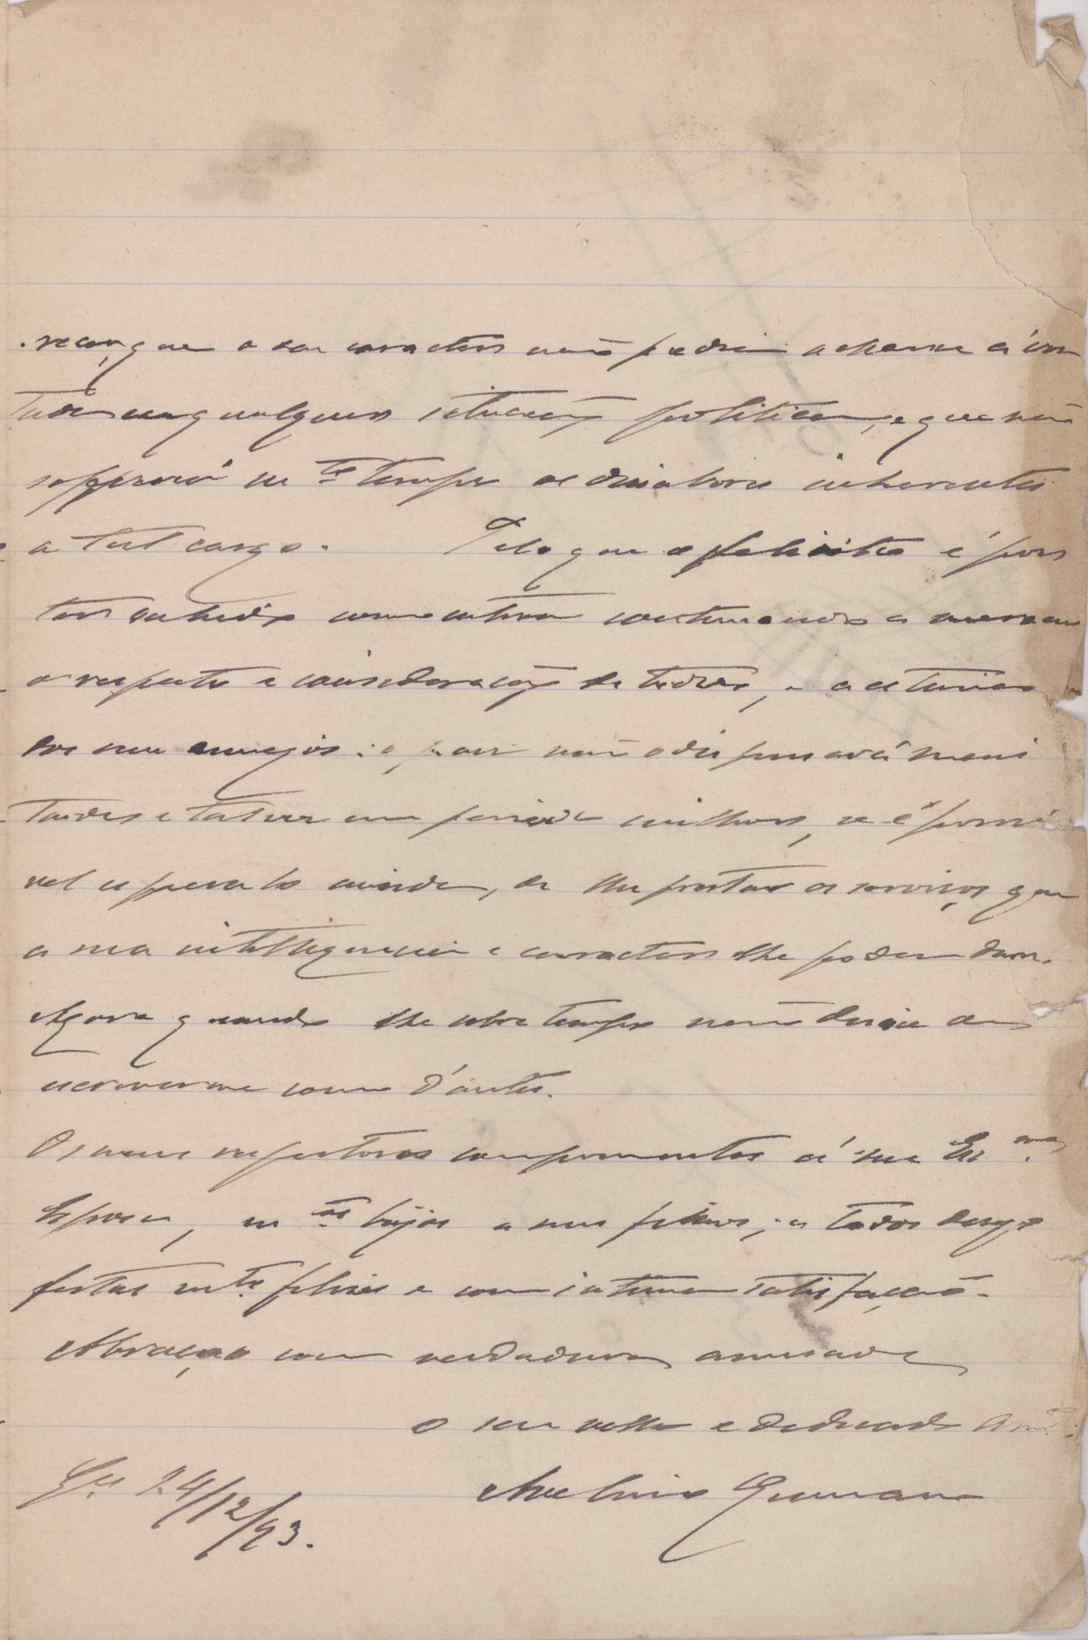 que o seu caracter não podia achar-se á von
tade em qualquer situação politica, e que não
soffreria m.to tempo os dissabores inherentes
a tal cargo. Pelo que o felicito é por
ter sahido como entrou continuando a merecer
o respeito e consideração de todos, e a estima
dos seus amigos: o paiz não o dispensará mais
tarde e talvez em periodo melhor, se é possi
vel esperal-o ainda, de lhe prestar os serviços que
a sua intelligencia e caracter lhe podem dar.
Agora quando lhe sobre tempo não deixe de
escrever-me como d'antes.
Os meus respeitosos comprimentos á sua Ex.ma
Esposa, m.tos beijos a seus filhos, e a todos desejo
festas m.to felizes e com intima satisfação.
Abraça-o com verdadeira amisade
o seu velho e dedicado Am.o
Avelino Germano
24/12/93.